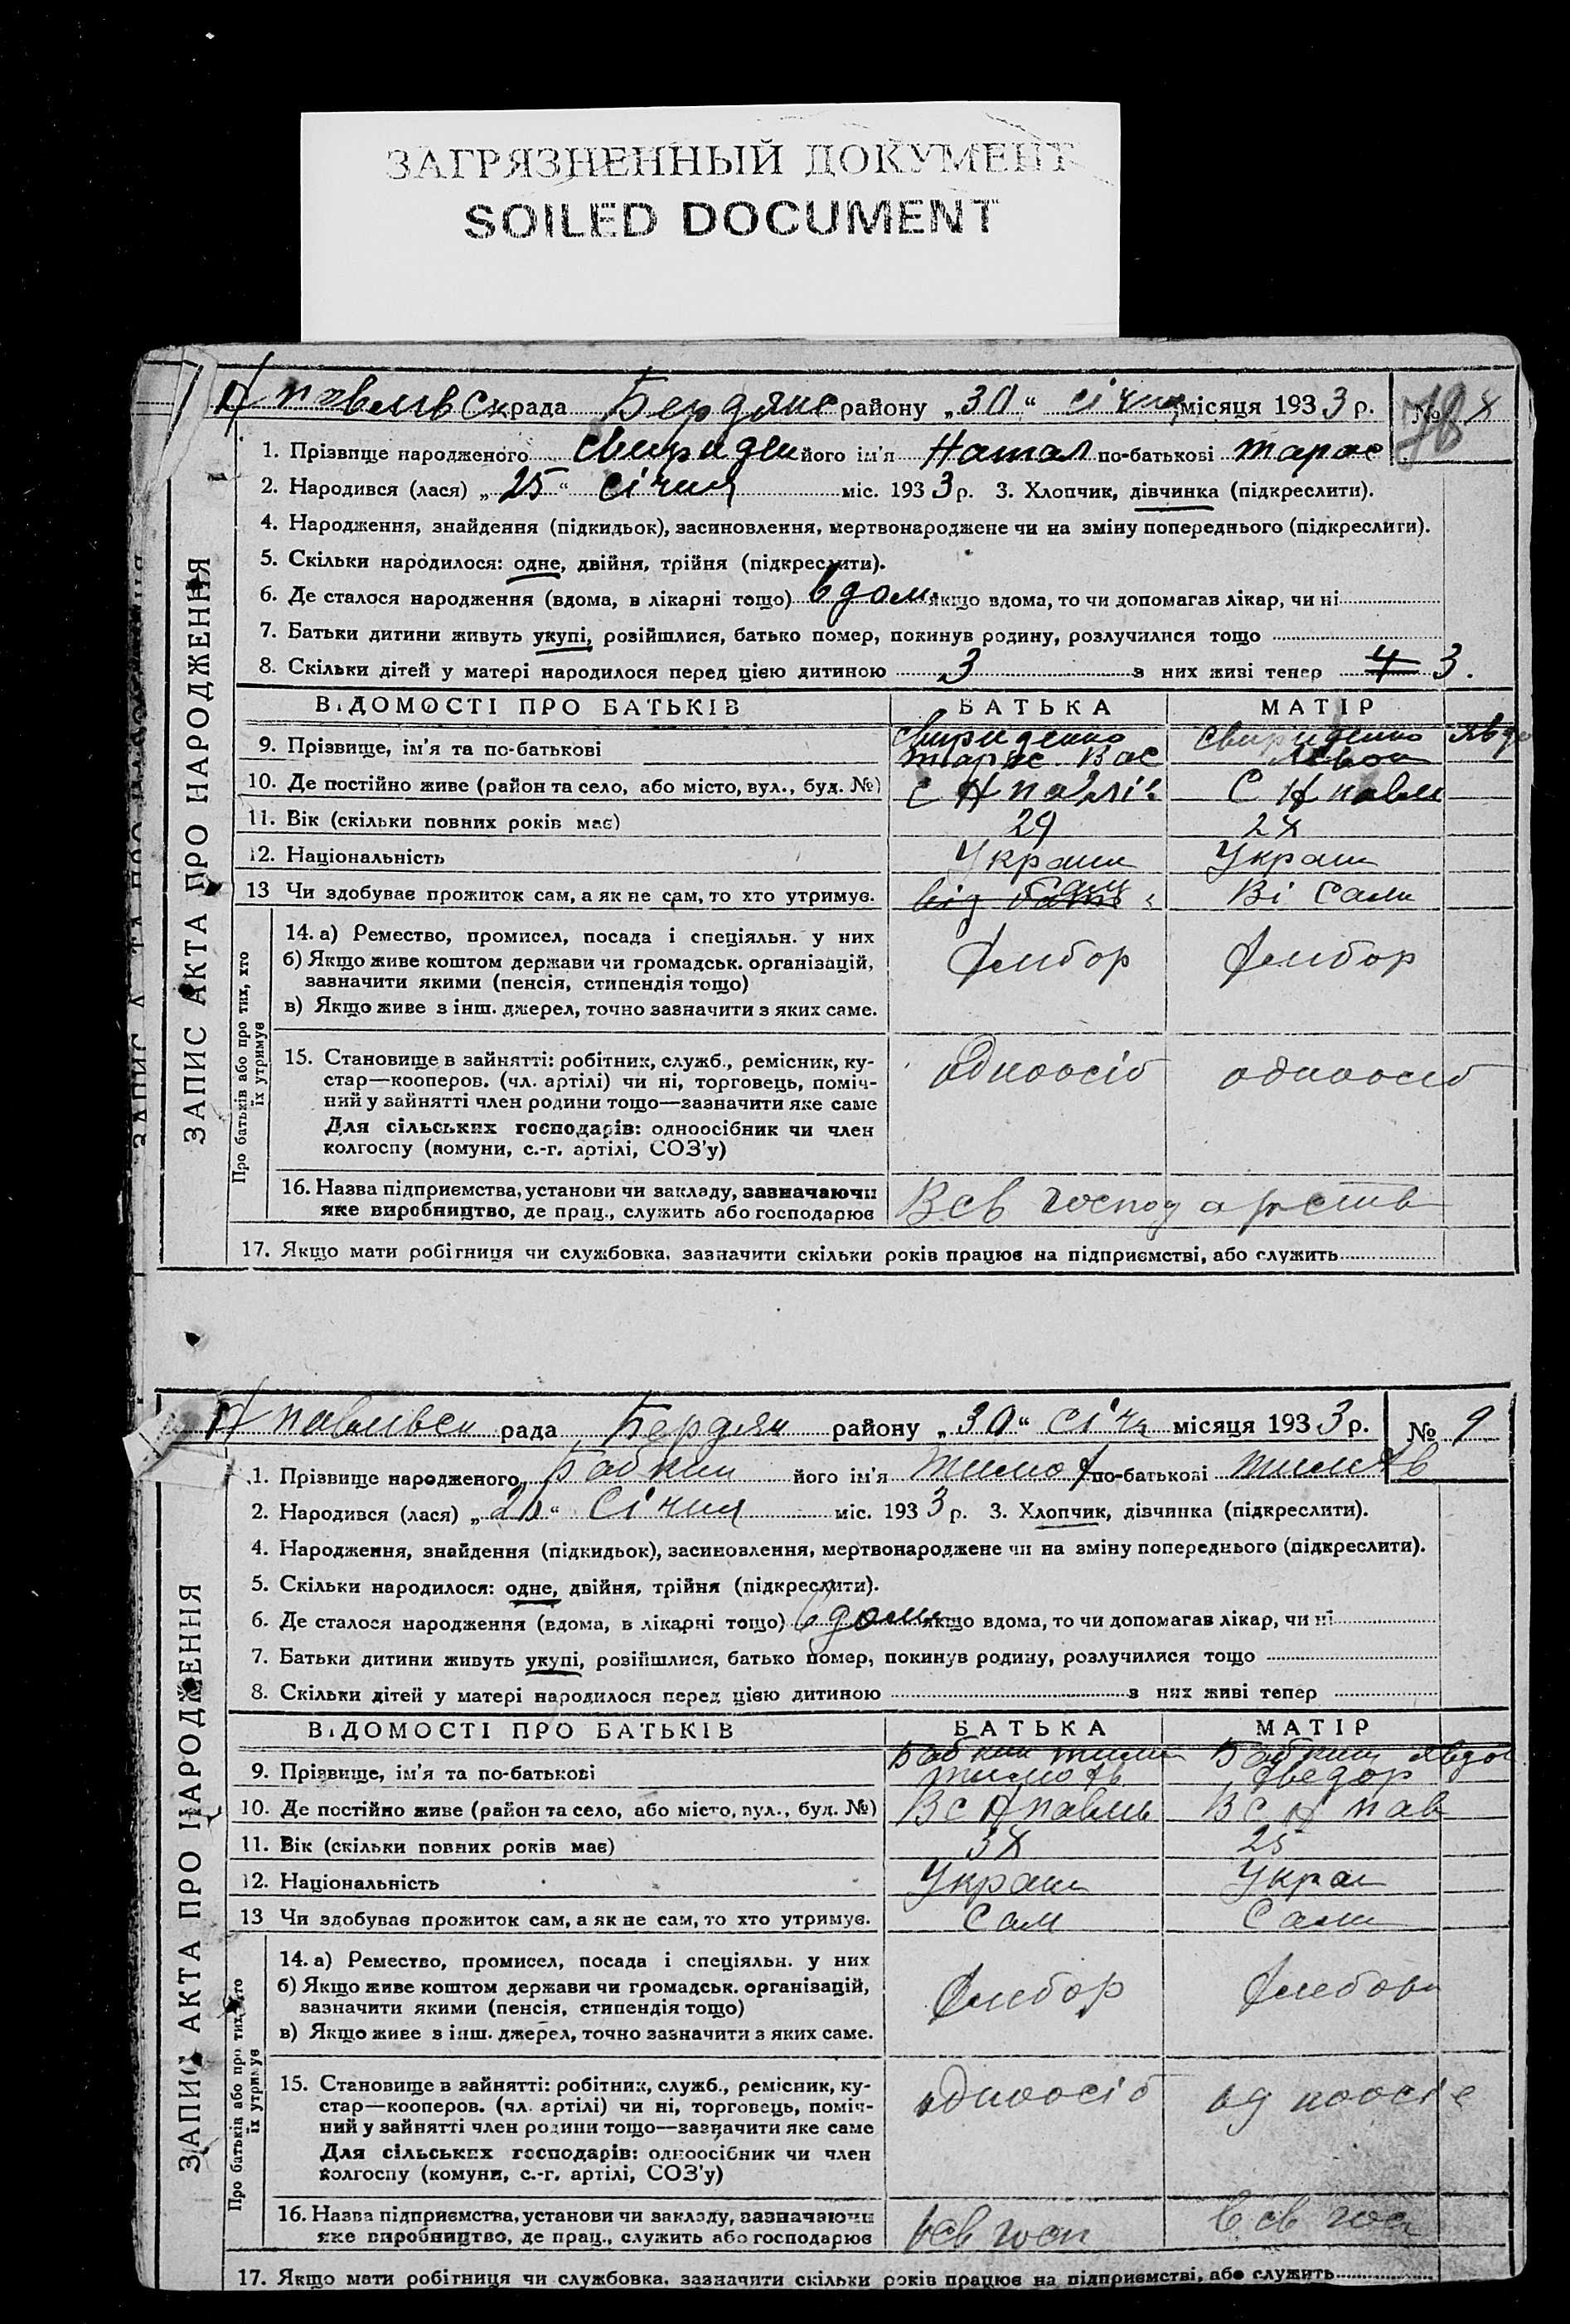 ЗАГРЯЗНЕННЫЙ ДОКУМЕНТ
SOILED DOCUMENT
ЗАПИС АКТА ПРО НАРОДЖЕННЯ
рада Бердянс району „30“ січня місяця 1933 р. №
1. Прізвище народженого Свириден його ім'я Натал по-батькові Тарас
2. Народився (лася) „25“ Січня міс. 1933 р. 3. Хлопчик, дівчинка (підкреслити).
4. Народження, знайдення (підкидьок), засиновлення, мертвонароджене чи на зміну попереднього (підкреслити).
5. Скільки народилося: одне, двійня, трійня (підкреслити).
6. Де сталося народження (вдома, в лікарні тощо) вдома якщо вдома, то чи допомагав лікар, чи ні
7. Батьки дитини живуть укупі, розійшлися, батько помер, покинув родину, розлучилися тощо
8. Скільки дітей у матері народилося перед цією дитиною 3 з них живі тепер 4 3.
ВІДОМОСТІ ПРО БАТЬКІВ БАТЬКА МАТІР
9. Прізвище, ім'я та по-батькові Свириденко Тарас Вас Свириденко Явдо
10. Де постійно живе (район та село, або місто, вул., буд. №) С Н павлів С Н павли
11. Вік (скільки повних років має) 29
12. Національність Україн Україн
13 Чи здобуває прожиток сам, а як не сам, то хто утримує. Сам Сами
Про батьків або про тих, хто їх утримує
14. а) Ремество, промисел, посада і спеціяльн. у них Хлибор Хлибор
б) Якщо живе коштом держави чи громадськ. організацій,
зазначити якими (пенсія, стипендія тощо)
в) Якщо живе з інш. джерел, точно зазначити з яких саме.
15. Становище в зайнятті: робітник, служб., ремісник, ку-
стар—кооперов. (чл. артілі) чи ні, торговець, поміч-
ний у зайнятті член родини тощо—зазначити яке саме
одноосіб одноосіб
Для сільських господарів: одноосібник чи член
колгоспу (комуни, с.-г. артілі, СОЗ'у)
16. Назва підприємства, установи чи закладу, зазначаючи
яке виробництво, де прац., служить або господарює
Всв господарстві
17. Якщо мати робітниця чи службовка, зазначити скільки років працює на підприємстві, або служить
ЗАПИС АКТА ПРО НАРОДЖЕННЯ
Н павлівск рада Бердян району „30“ січн місяця 1933 р. № 9
1. Прізвище народженого Бабкин його ім'я Тимоф по-батькові
2. Народився (лася) „20“ Січня міс. 1933 р. 3. Хлопчик, дівчинка (підкреслити).
4. Народження, знайдення (підкидьок), засиновлення, мертвонароджене чи на зміну попереднього (підкреслити).
5. Скільки народилося: одне, двійня, трійня (підкреслити).
6. Де сталося народження (вдома, в лікарні тощо) вдома якщо вдома, то чи допомагав лікар, чи ні
7. Батьки дитини живуть укупі, розійшлися, батько помер, покинув родину, розлучилися тощо
8. Скільки дітей у матері народилося перед цією дитиною з них живі тепер
ВІДОМОСТІ ПРО БАТЬКІВ БАТЬКА МАТІР
9. Прізвище, ім'я та по-батькові Бабкин Бабкин Явдок Хведор
10. Де постійно живе (район та село, або місто, вул., буд. №) Вс Н павлів Вс Н пав
11. Вік (скільки повних років має) 25
12. Національність Україн Украї
13 Чи здобуває прожиток сам, а як не сам, то хто утримує. Сам Сами
Про батьків або про тих, хто їх утримує
14. а) Ремество, промисел, посада і спеціяльн. у них Хлибор Хлебор
б) Якщо живе коштом держави чи громадськ. організацій,
зазначити якими (пенсія, стипендія тощо)
в) Якщо живе з інш. джерел, точно зазначити з яких саме.
15. Становище в зайнятті: робітник, служб., ремісник, ку-
стар—кооперов. (чл. артілі) чи ні, торговець, поміч-
ний у зайнятті член родини тощо—зазначити яке саме
одноосіб одноосіб
Для сільських господарів: одноосібник чи член
колгоспу (комуни, с.-г. артілі, СОЗ'у)
16. Назва підприємства, установи чи закладу, зазначаючи
яке виробництво, де прац., служить або господарює
Всв госп всв гос
17. Якщо мати робітниця чи службовка, зазначити скільки років працює на підприємстві, або служить